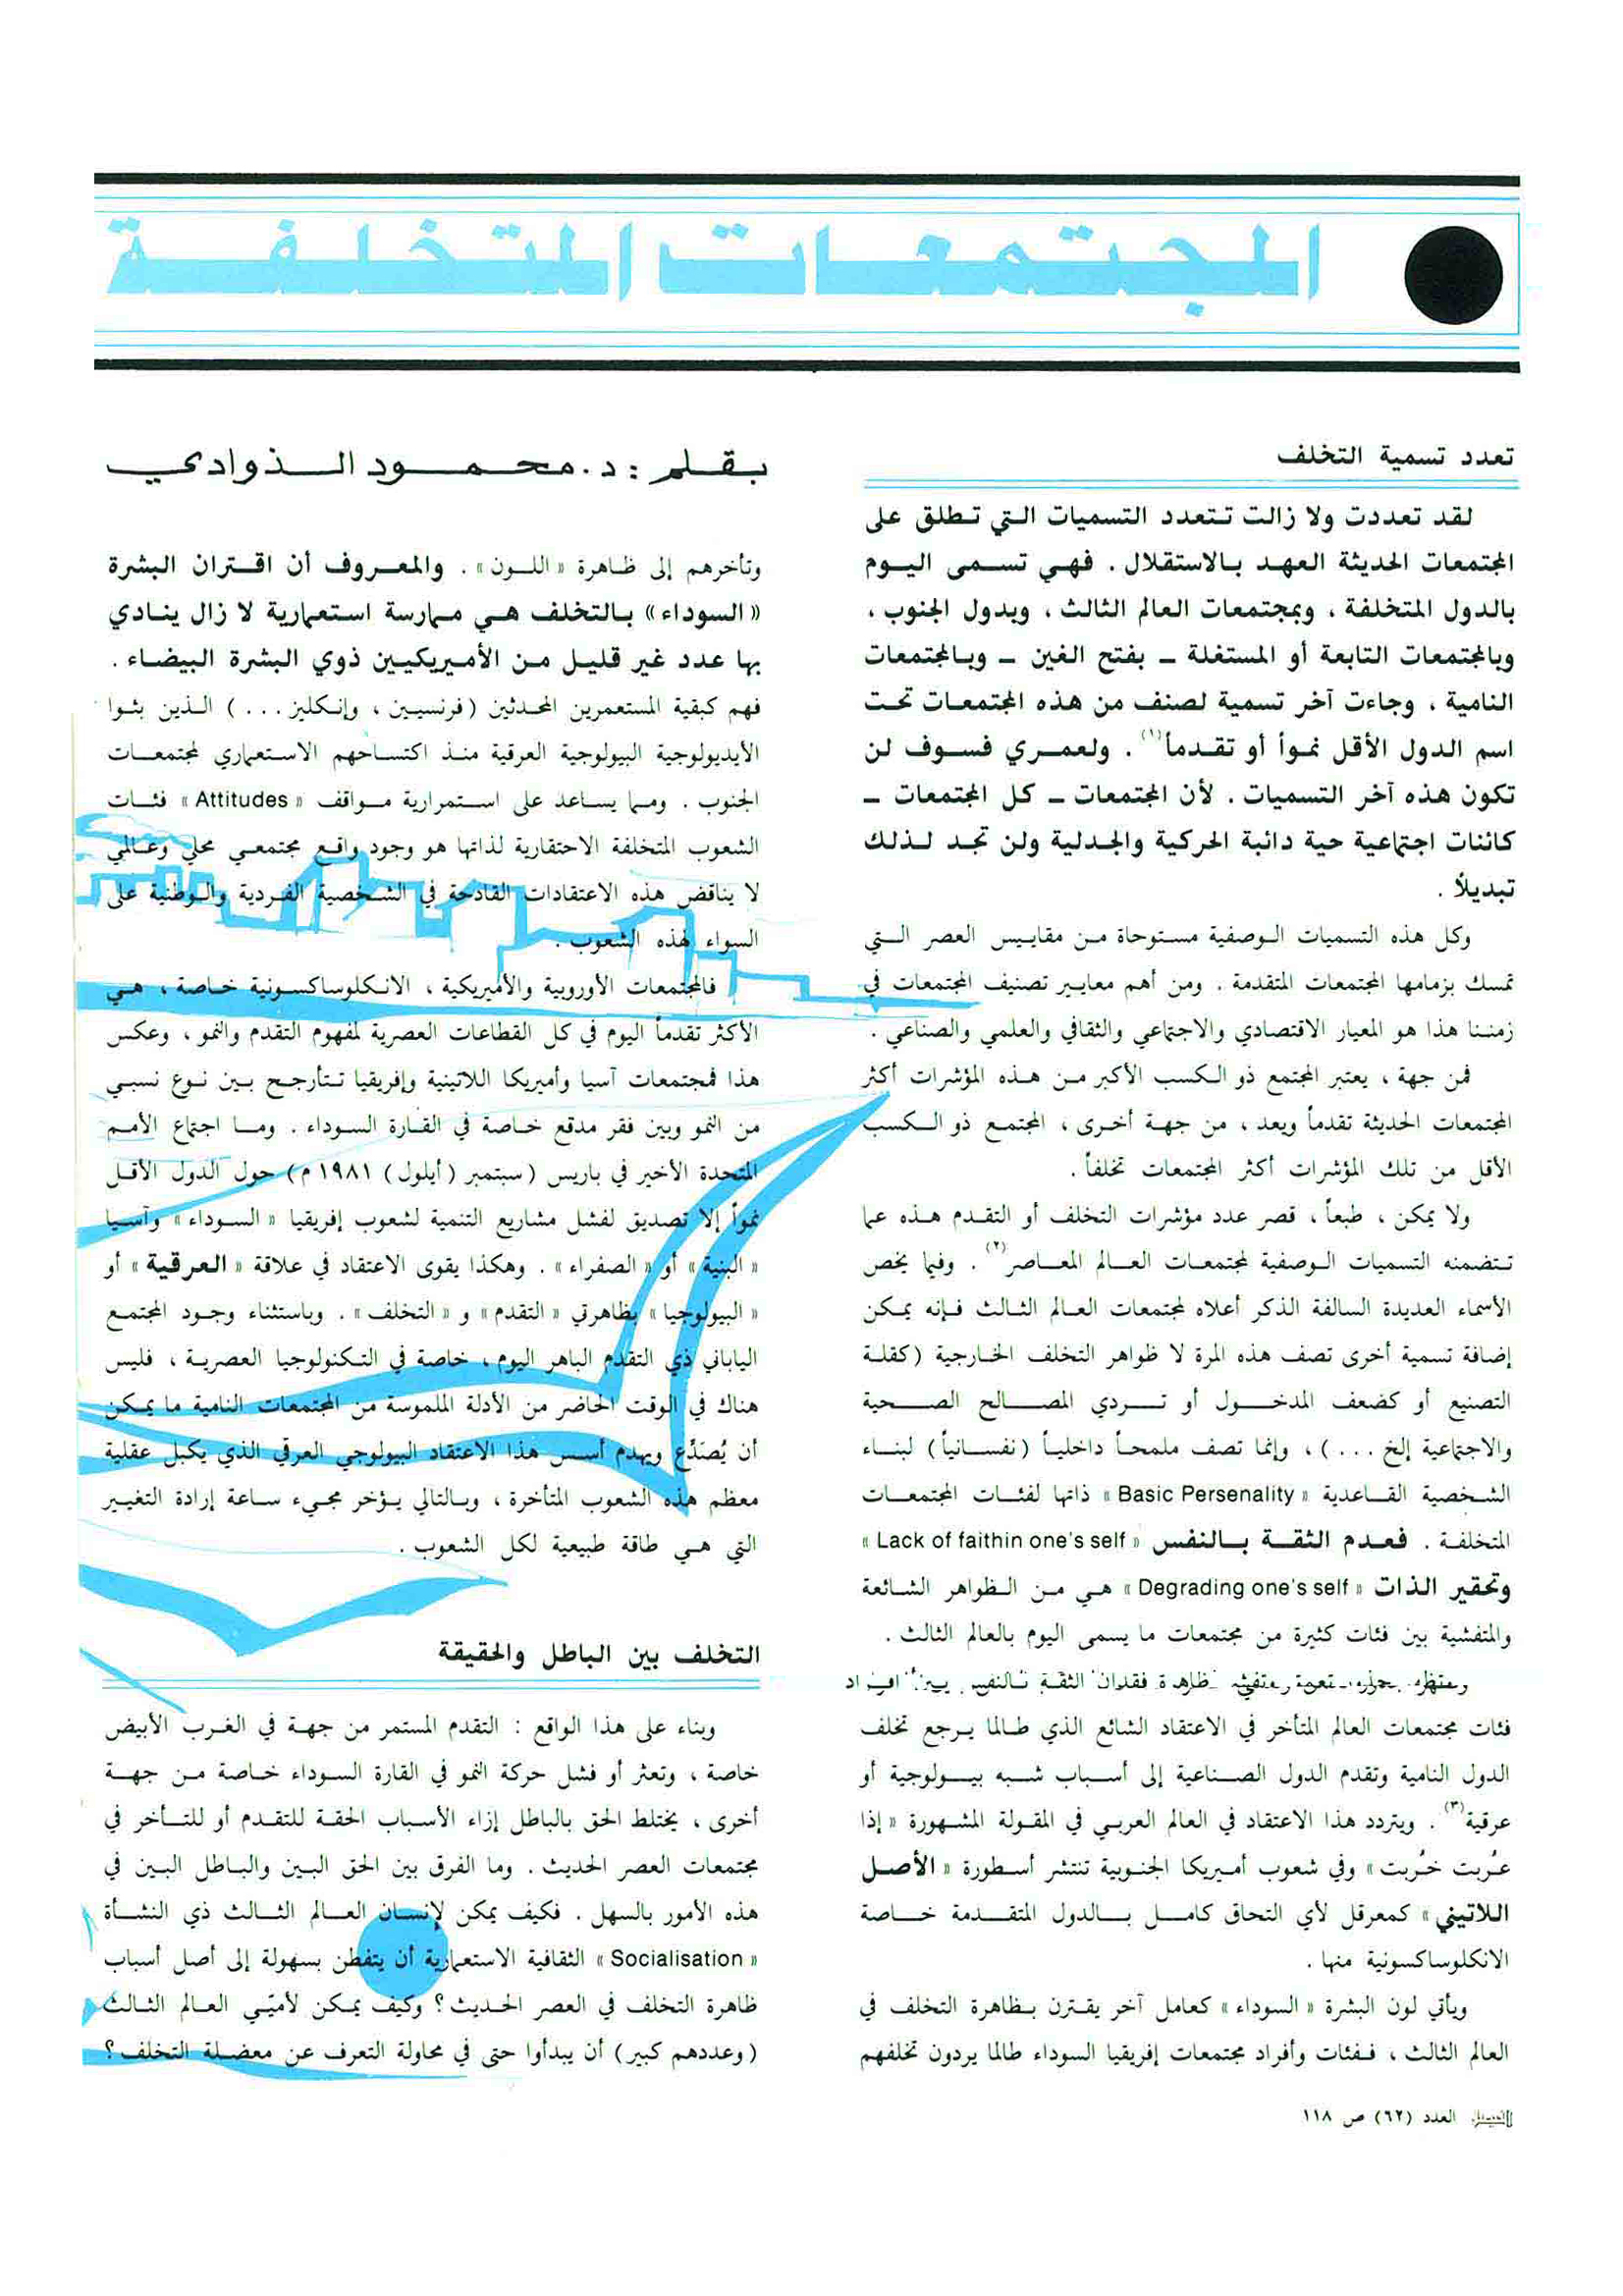 المجتمعات المتخلفة
بقلم : د. محمود الذوادي
تعدد تسمية التخلف
لقد تعددت ولا زالت تتعدد التسميات التي تطلق على
المجتمعات الحديثة العهد بالاستقلال . فهي تسمى اليوم
بالدول المتخلفة ، وبمجتمعات العالم الثالث ، وبدول الجنوب ،
وبالمجتمعات التابعة أو المستغلة – بفتح الغين – وبالمجتمعات
النامية ، وجاءت آخر تسمية لصنف من هذه المجتمعات تحت
اسم الدول الأقل نمواً أو تقدماً (١) . ولعمري فسوف لن
تكون هذه آخر التسميات . لأن المجتمعات – كل المجتمعات –
كائنات اجتماعية حية دائبة الحركية والجدلية ولن تجد لذلك
تبديلاً .
وكل هذه التسميات الوصفية مستوحاة من مقاييس العصر التي
تمسك بزمامها المجتمعات المتقدمة . ومن أهم معايير تصنيف المجتمعات في
زمننا هذا هو المعيار الاقتصادي والاجتماعي والثقافي والعلمي والصناعي .
فمن جهة ، يعتبر المجتمع ذو الكسب الأكبر من هذه المؤشرات أكثر
المجتمعات الحديثة تقدماً ويعد ، من جهة أخرى ، المجتمع ذو الكسب
الأقل من تلك المؤشرات أكثر المجتمعات تخلفاً .
ولا يمكن ، طبعاً ، قصر عدد مؤشرات التخلف أو التقدم هذه عما
تتضمنه التسميات الوصفية لمجتمعات العالم المعاصر (٢) . وفيما يخص
الأسماء العديدة السالفة الذكر أعلاه لمجتمعات العالم الثالث فإنه يمكن
إضافة تسمية أخرى تصف هذه المرة لا ظواهر التخلف الخارجية (كقلة
التصنيع أو كضعف المدخول أو تردي المصالح الصحية
والاجتماعية إلخ ...) ، وإنما تصف ملمحاً داخلياً (نفسانياً) لبناء
الشخصية القاعدية « Basic Persenality » ذاتها لفئات المجتمعات
المتخلفة . فعدم الثقة بالنفس « Lack of faithin one's self »
وتحقير الذات « Degrading one's self » هي من الظواهر الشائعة
والمتفشية بين فئات كثيرة من مجتمعات ما يسمى اليوم بالعالم الثالث .
ظاهرة فقدان الثقة بالنفس بين أفراد
فئات مجتمعات العالم المتأخر في الاعتقاد الشائع الذي طالما يرجع تخلف
الدول النامية وتقدم الدول الصناعية إلى أسباب شبه بيولوجية أو
عرقية (٣) . ويتردد هذا الاعتقاد في العالم العربي في المقولة المشهورة « إذا
عُربت خُربت » وفي شعوب أميريكا الجنوبية تنتشر أسطورة « الأصل
اللاتيني » كمعرقل لأي التحاق كامل بالدول المتقدمة خاصة
الانكلوساكسونية منها .
ويأتي لون البشرة « السوداء » كعامل آخر يقترن بظاهرة التخلف في
العالم الثالث ، ففئات وأفراد مجتمعات إفريقيا السوداء طالما يردون تخلفهم
وتأخرهم إلى ظاهرة « اللون » . والمعروف أن اقتران البشرة
« السوداء » بالتخلف هي ممارسة استعمارية لا زال ينادي
بها عدد غير قليل من الأميريكيين ذوي البشرة البيضاء .
فهم كبقية المستعمرين المحدثين (فرنسيين ، وإنكليز ...) الذين بثوا
الأيديولوجية البيولوجية العرقية منذ اكتساحهم الاستعماري لمجتمعات
الجنوب . ومما يساعد على استمرارية مواقف « Attitudes » فئات
الشعوب المتخلفة الاحتقارية لذاتها هو وجود واقع مجتمعي محلي وعالمي
لا يناقض هذه الاعتقادات القادحة في الشخصية الفردية والوطنية على
السواء لهذه الشعوب .
فالمجتمعات الأوروبية والأميريكية ، الانكلوساكسونية خاصة ، هي
الأكثر تقدماً اليوم في كل القطاعات العصرية لمفهوم التقدم والنمو ، وعكس
هذا فمجتمعات آسيا وأميريكا اللاتينية وإفريقيا تتأرجح بين نوع نسبي
من النمو وبين فقر مدقع خاصة في القارة السوداء . وما اجتماع الأمم
المتحدة الأخير في باريس (سبتمبر (أيلول) ١٩٨١ م) حول الدول الأقل
نمواً إلا تصديق لفشل مشاريع التنمية لشعوب إفريقيا « السوداء » وآسيا
« البنية » أو « الصفراء » . وهكذا يقوى الاعتقاد في علاقة « العرقية » أو
« البيولوجيا » بظاهرتي « التقدم » و « التخلف » . وباستثناء وجود المجتمع
الياباني ذي التقدم الباهر اليوم ، خاصة في التكنولوجيا العصرية ، فليس
هناك في الوقت الحاضر من الأدلة الملموسة من المجتمعات النامية ما يمكن
أن يُصَدِّع ويهدم أسس هذا الاعتقاد البيولوجي العرقي الذي يكبل عقلية
معظم هذه الشعوب المتأخرة ، وبالتالي يؤخر مجيء ساعة إرادة التغيير
التي هي طاقة طبيعية لكل الشعوب .
التخلف بين الباطل والحقيقة
وبناء على هذا الواقع : التقدم المستمر من جهة في الغرب الأبيض
خاصة ، وتعثر أو فشل حركة النمو في القارة السوداء خاصة من جهة
أخرى ، يختلط الحق بالباطل إزاء الأسباب الحقة للتقدم أو للتأخر في
مجتمعات العصر الحديث . وما الفرق بين الحق البين والباطل البين في
هذه الأمور بالسهل . فكيف يمكن لإنسان العالم الثالث ذي النشأة
« Socialisation » الثقافية الاستعمارية أن يتفطن بسهولة إلى أصل أسباب
ظاهرة التخلف في العصر الحديث؟ وكيف يمكن لأميّي العالم الثالث
(وعددهم كبير) أن يبدأوا حتى في محاولة التعرف عن معضلة التخلف؟
الفيصل العدد (٦٢) ص ١١٨